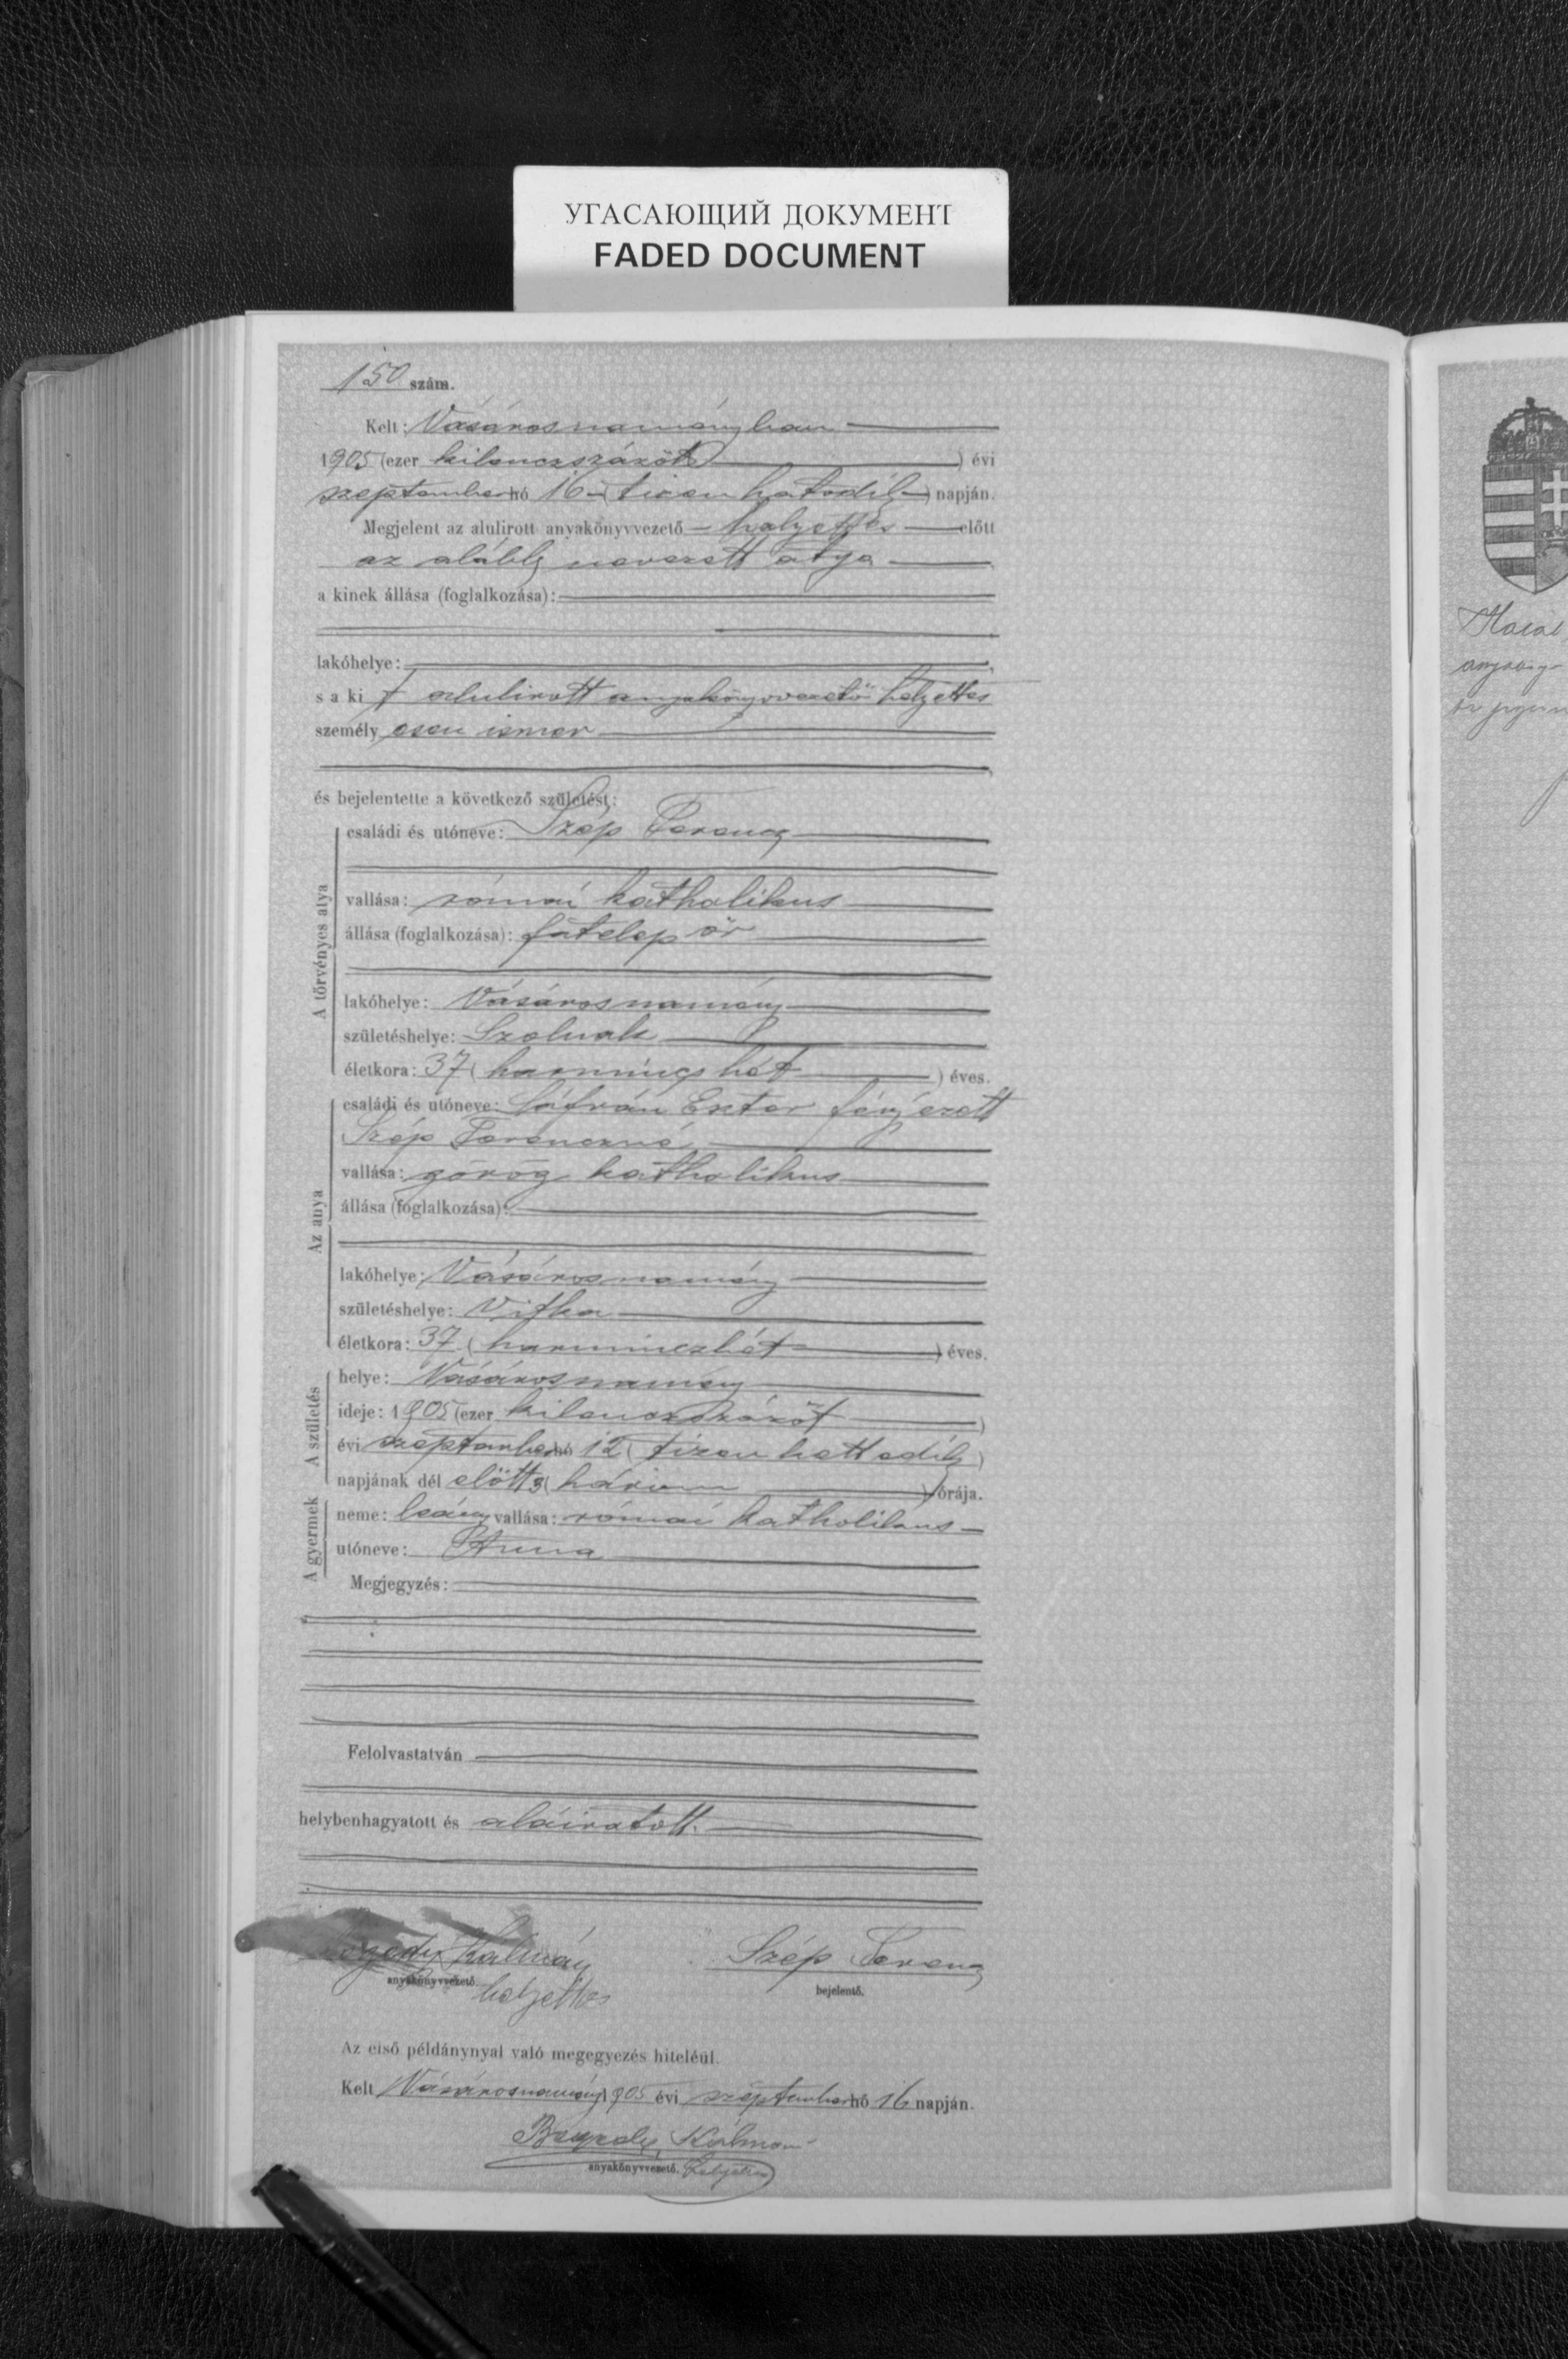 УГАСАЮЩИЙ ДОКУМЕНТ
FADED DOCUMENT
150 szám.
Kelt: Vásárosnaményban
1905 (ezer kilenczszázöt) évi
szeptember hó 16 (tizenhatodik) napján.
Megjelent az alulirott anyakönyvvezető helyettes előtt
az alább nevezett atya
a kinek állása (foglalkozása):
lakóhelye:
s a ki t alulirott anyakönyvvezető helyettes
személyesen ismer
és bejelentette a következő születést:
A törvényes atya
családi és utóneve: Szép Ferencz
vallása: római katholikus
állása (foglalkozása): fatelep őr
lakóhelye: Vásárosnamény
születéshelye: Szolnok
életkora: 37 (harmincz hét) éves.
Az anya
családi és utóneve: Sáfrán Eszter férjezett
Szép Ferenczné
vallása: görög katholikus
állása (foglalkozása):
lakóhelye: Vásárosnamény
születéshelye: Vitka
életkora: 37 (harminczhét) éves.
A születés
helye: Vásárosnamény
ideje: 1905 (ezer kilenczszázöt)
évi szeptember hó 12 (tizenkettedik)
napjának dél előtt 3 (három) órája.
A gyermek
neme: leány vallása: római katholikus
utóneve: Anna
Megjegyzés:
Felolvastatván
helybenhagyatott és aláiratott.
Kálmán Szép Ferencz
anyakönyvvezető. helyettes bejelentő.
Az első példánynyal való megegyezés hiteléül.
Kelt Vásárosnamény 1905 évi szeptember hó 16 napján.
Kálmán
anyakönyvvezető. helyettes